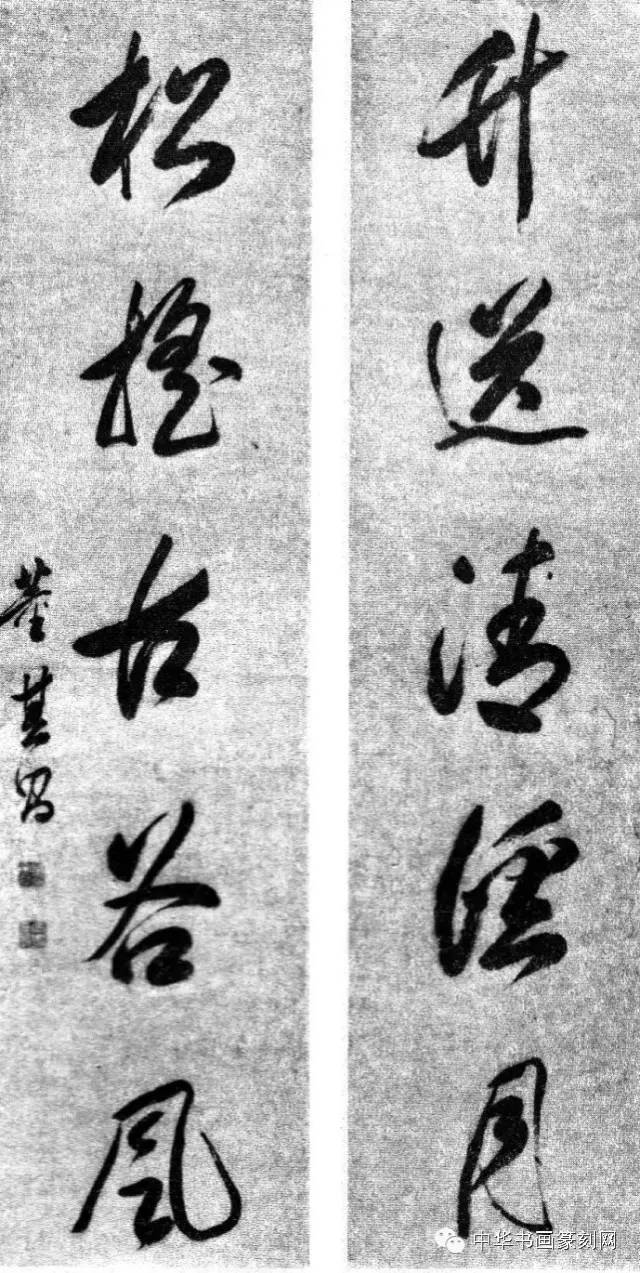 竹送清溪月
松搖古谷風
董其昌
中华书画篆刻网